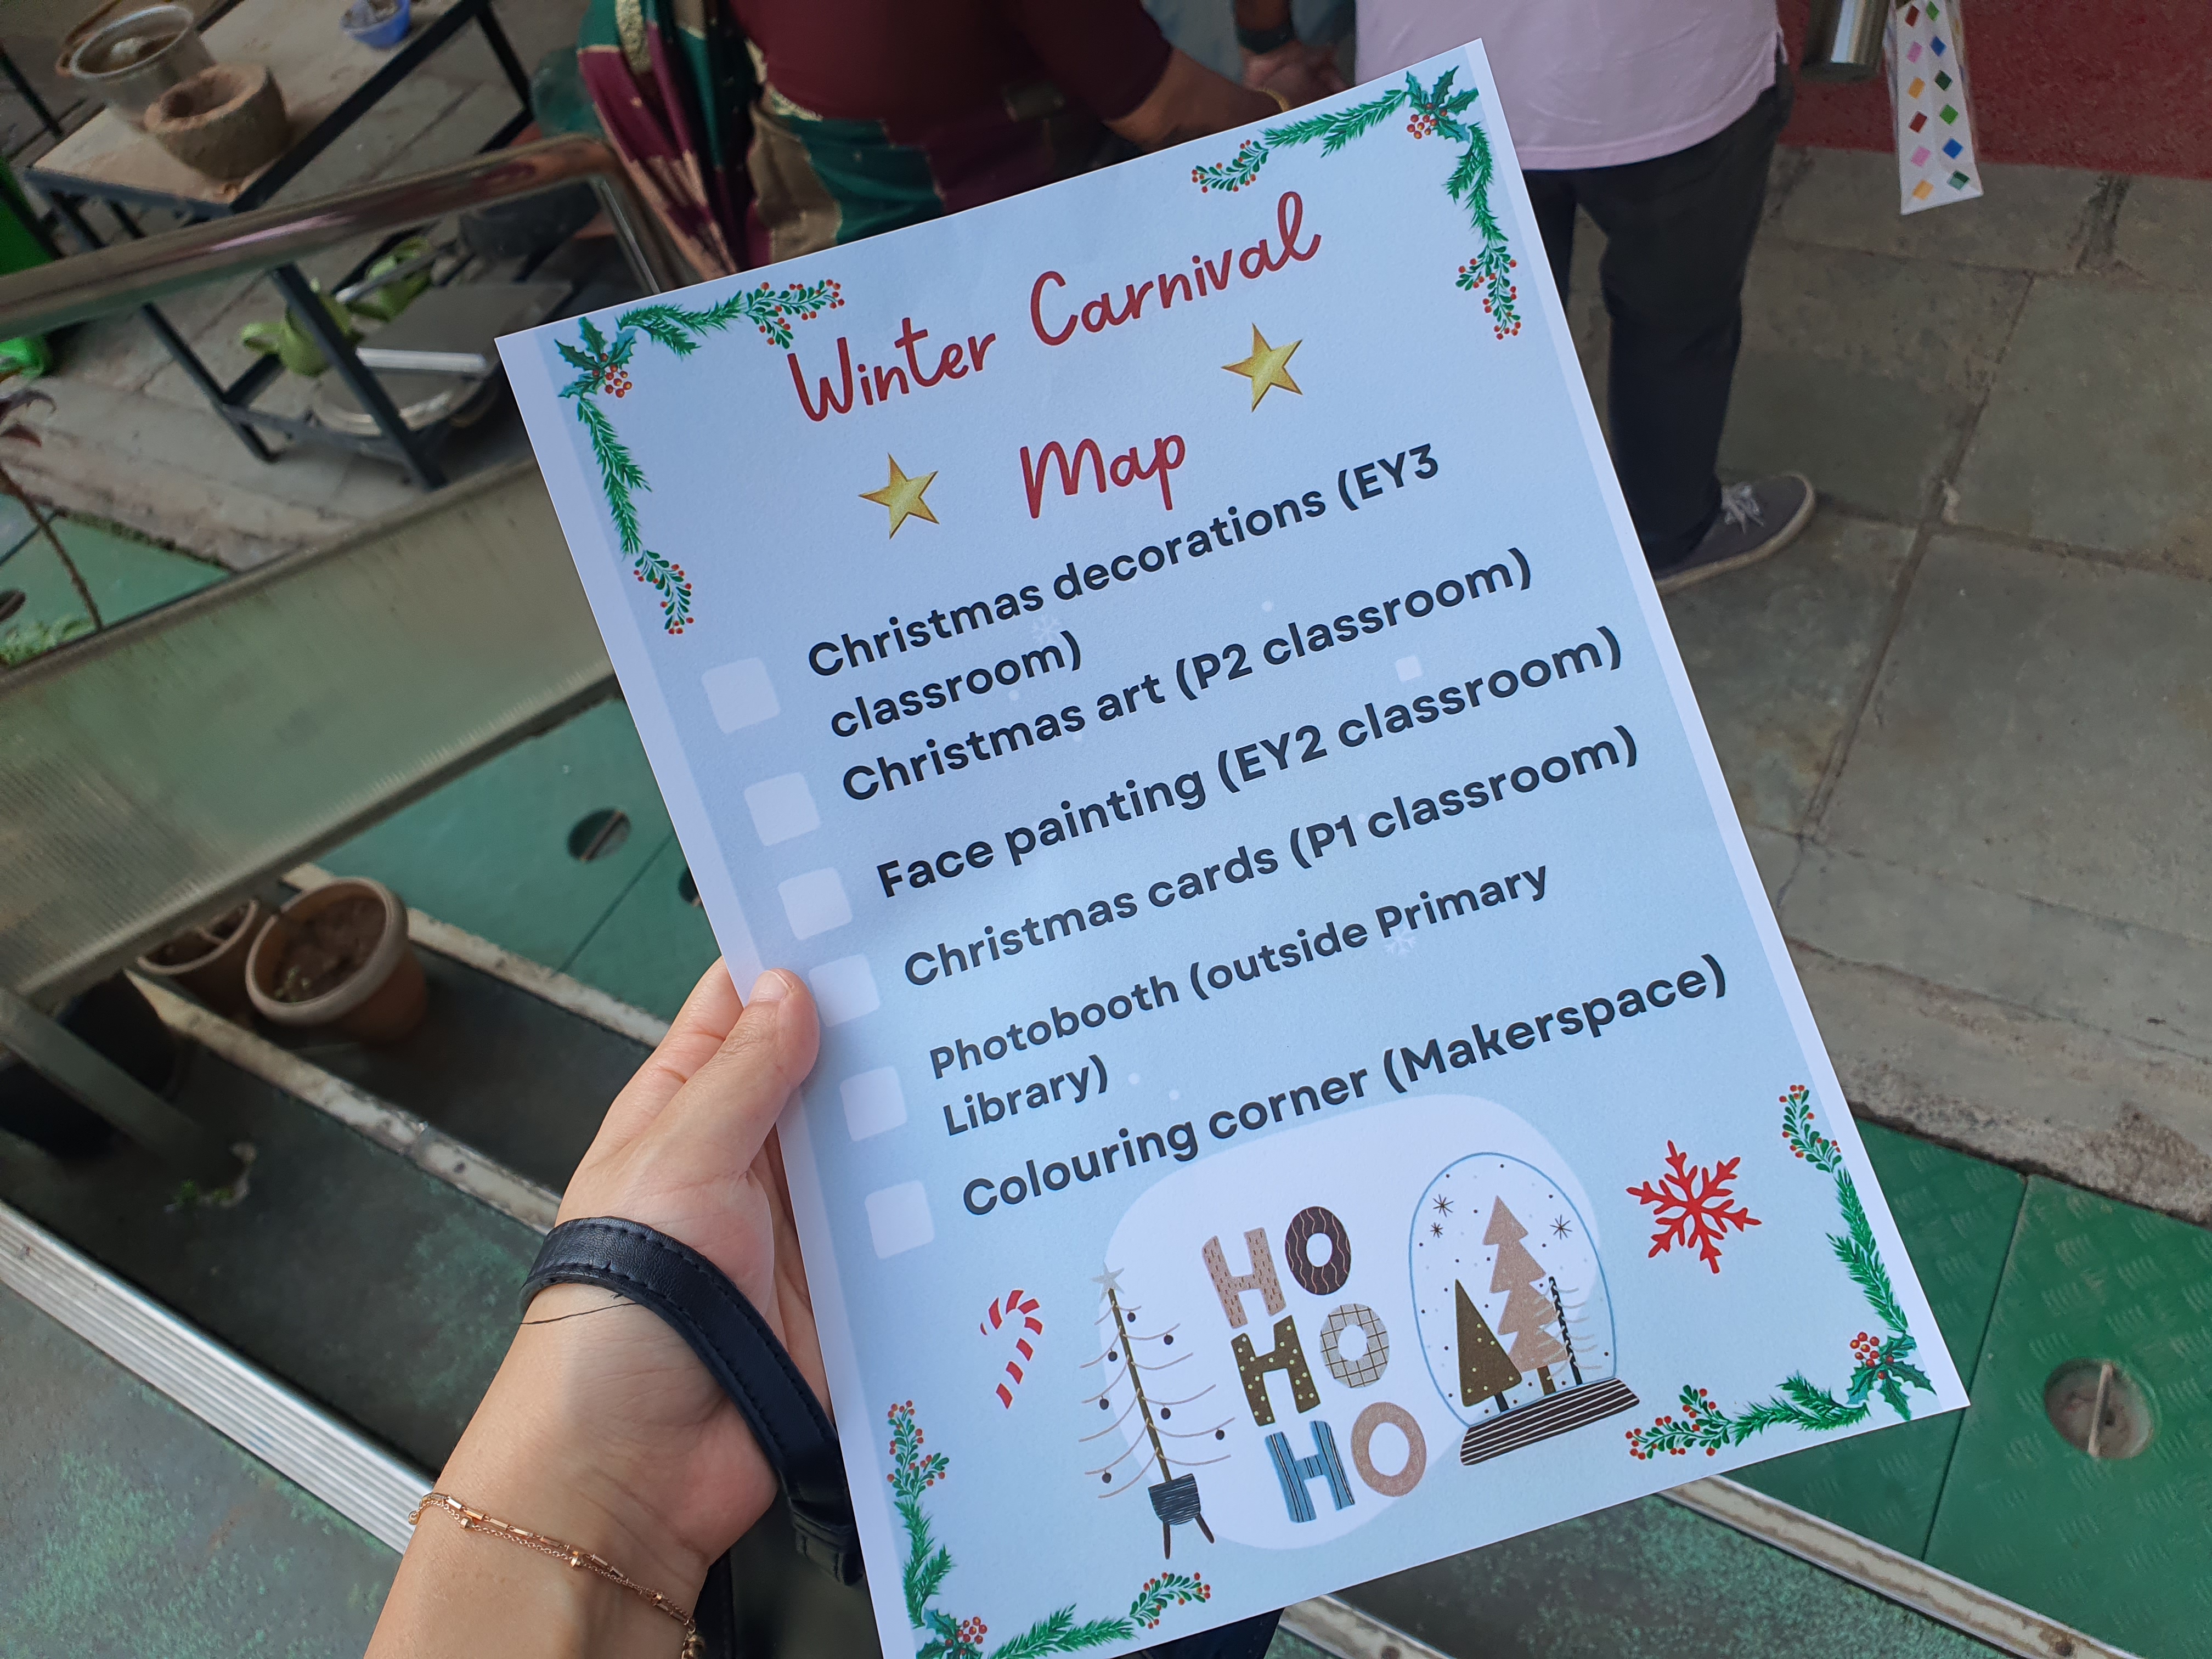 Winter Carnival
Map
Christmas decorations (EY3
classroom)
Christmas art (P2 classroom)
Face painting (EY2 classroom)
Christmas cards (P1 classroom)
Photobooth (outside Primary
Library)
Colouring corner (Makerspace)
HO
HO
HO